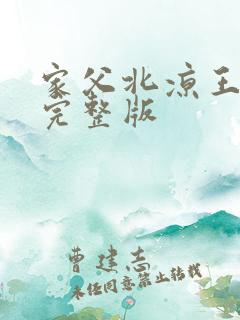 家父北凉王
完整版
曹建志
未经同意禁止转载